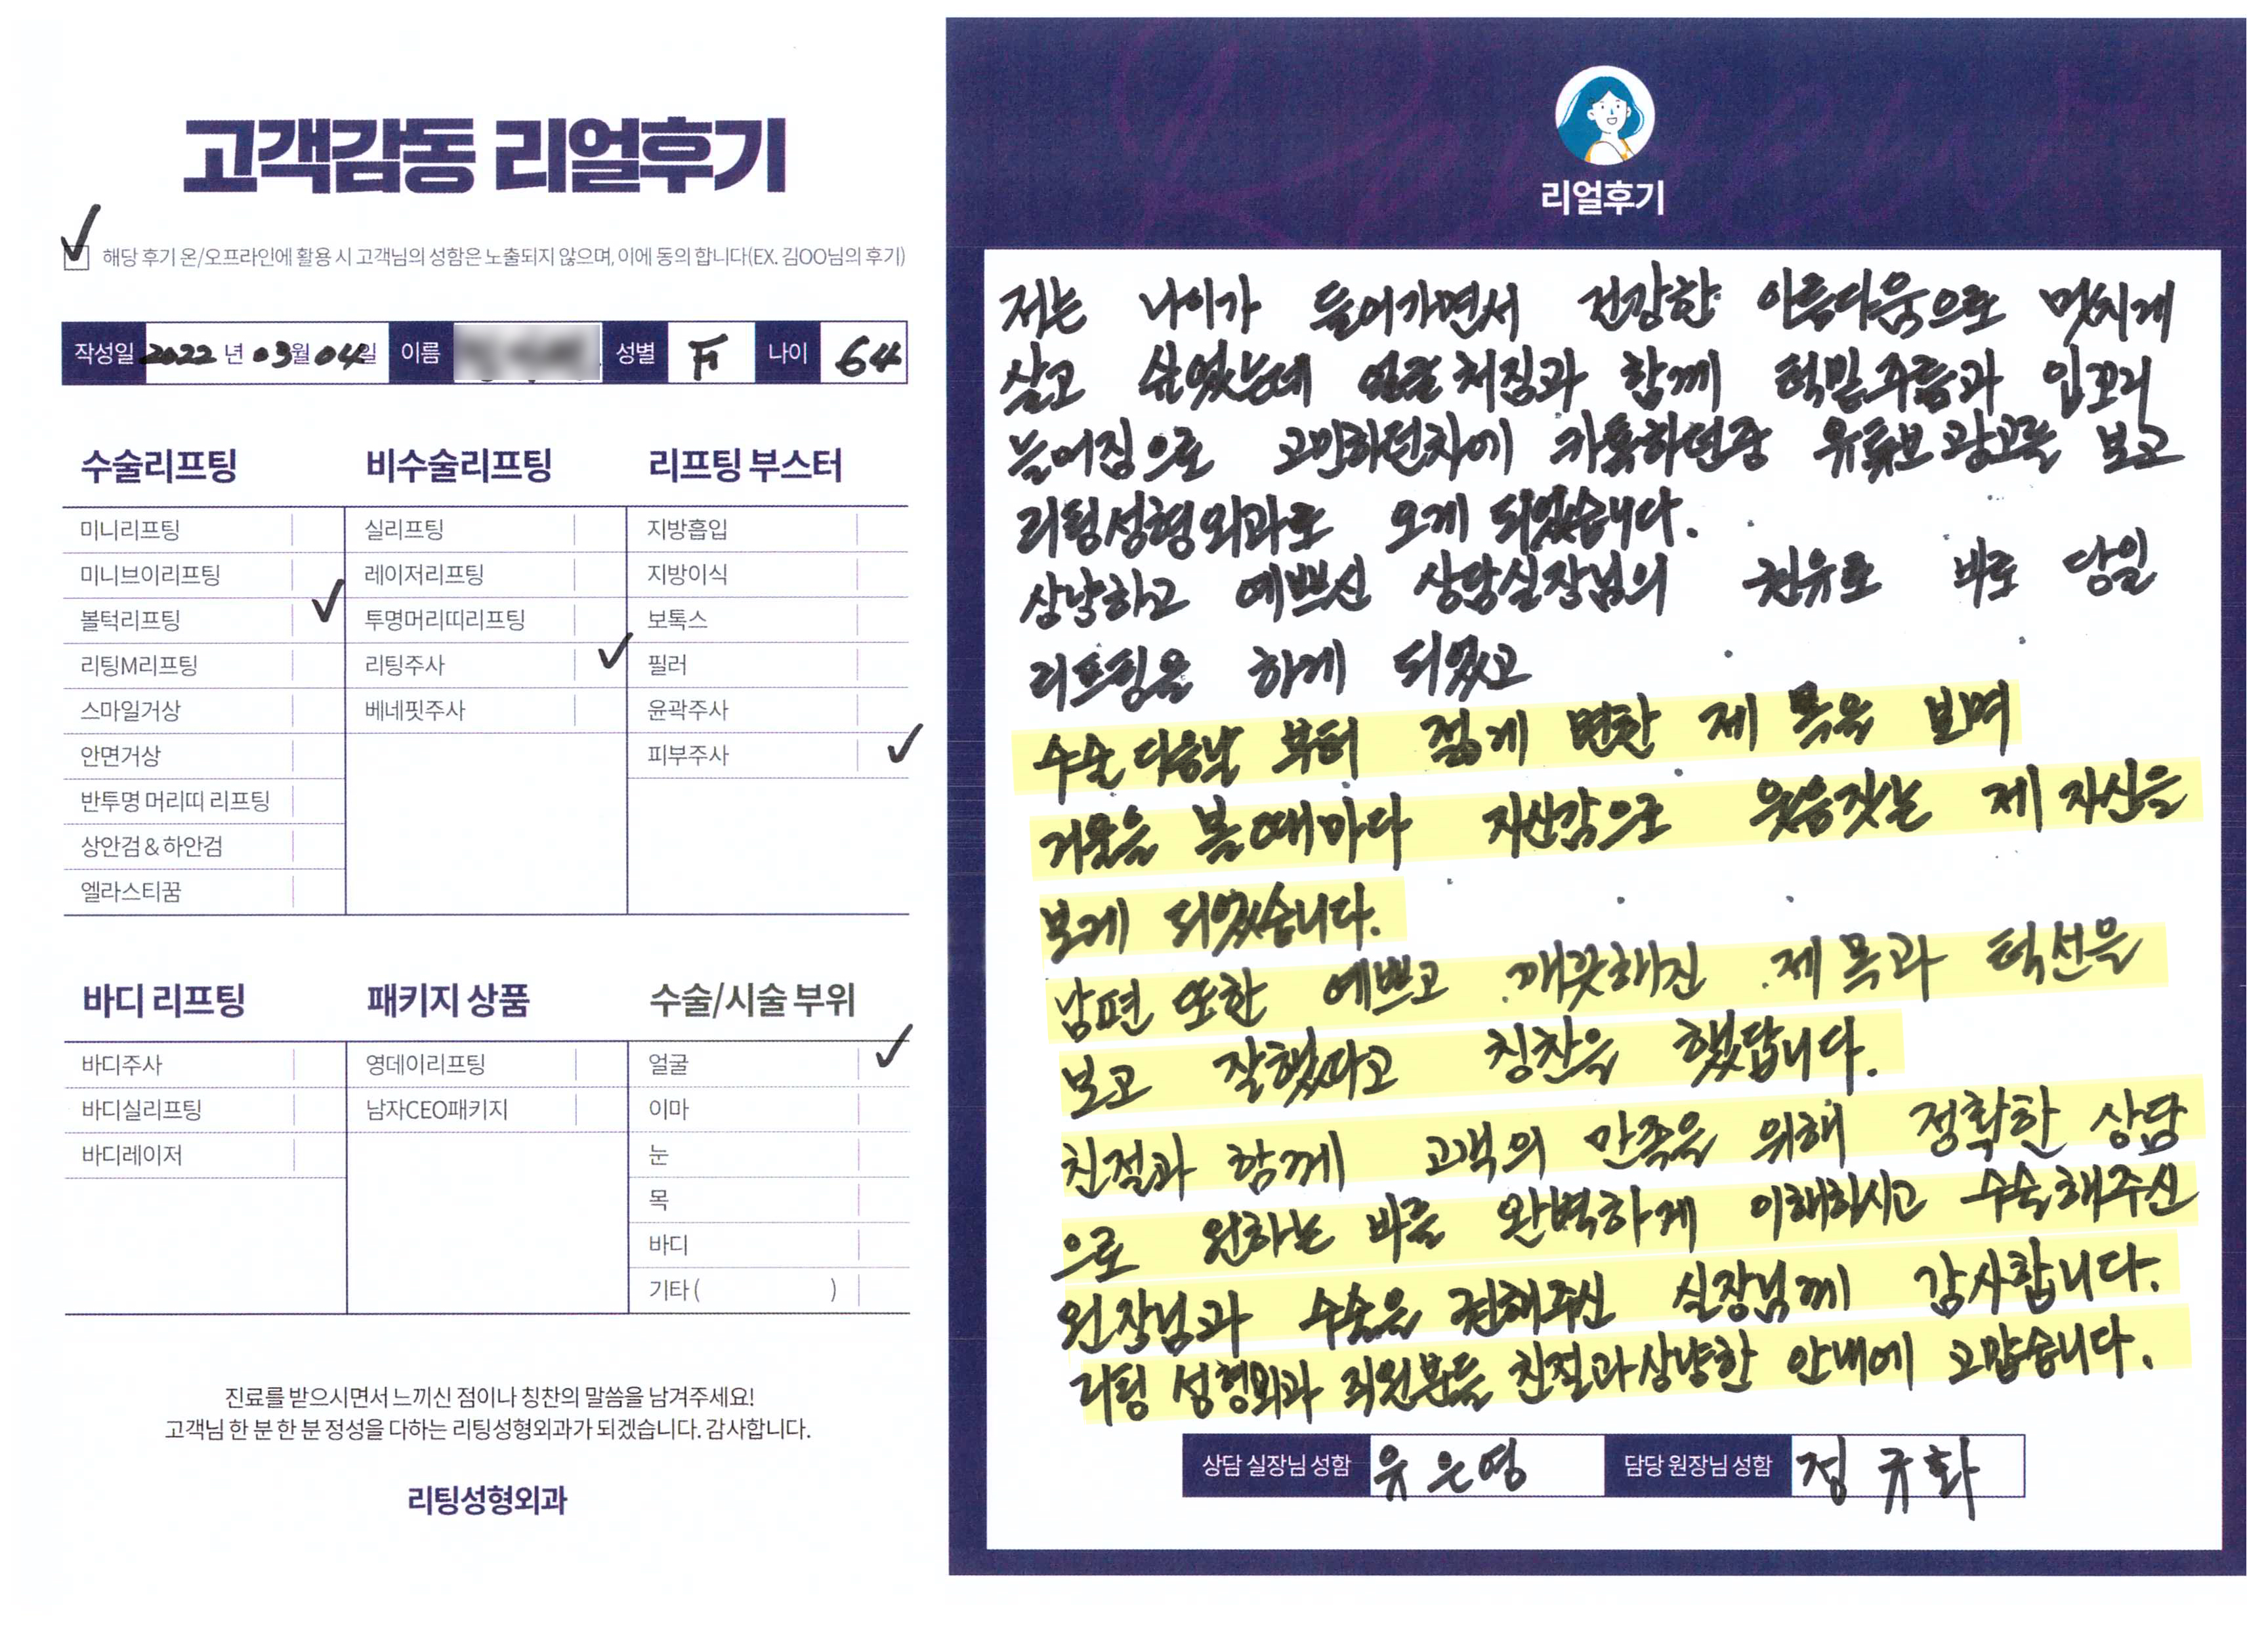 고객감동 리얼후기
해당 후기 온/오프라인에 활용 시 고객님의 성함은 노출되지 않으며, 이에 동의 합니다(EX. 김OO님의 후기)
작성일 2022 년 03월 04일 이름 성별 F 나이 64
수술리프팅
미니리프팅
미니브이리프팅
볼턱리프팅
리팅M리프팅
스마일거상
안면거상
반투명 머리띠 리프팅
상안검 & 하안검
엘라스티꿈
비수술리프팅
실리프팅
레이저리프팅
투명머리띠리프팅
리팅주사
베네핏주사
리프팅 부스터
지방흡입
지방이식
보톡스
필러
윤곽주사
피부주사
바디 리프팅
바디주사
바디실리프팅
바디레이저
패키지 상품
영데이리프팅
남자CEO패키지
수술/시술 부위
얼굴
이마
눈
목
바디
기타 ( )
진료를 받으시면서 느끼신 점이나 칭찬의 말씀을 남겨주세요!
고객님 한 분 한 분 정성을 다하는 리팅성형외과가 되겠습니다. 감사합니다.
리팅성형외과
리얼후기
저는 나이가 들어가면서 건강한 아름다움으로 멋지게
살고 싶었는데 얼굴 처짐과 함께 턱밑주름과 입꼬리
늘어짐으로 고민하던차에 카톡하던중 유튜브 광고를 보고
리팅성형외과로 오게 되었습니다.
상냥하고 예쁘신 상담실장님의 권유로 바로 당일
리프팅을 하게 되었고
수술 다음날 부터 젊게 변한 제 목을 보며
거울을 볼때마다 자신감으로 웃음짓는 제 자신을
보게 되었습니다.
남편 또한 예쁘고 깨끗해진 제 목과 턱선을
보고 잘했다고 칭찬을 했답니다.
친절과 함께 고객의 만족을 위해 정확한 상담
으로 원하는 바를 완벽하게 이해하시고 수술해주신
원장님과 수술을 권해주신 실장님께 감사합니다.
리팅 성형외과 직원분들 친절과상냥한 안내에 고맙습니다.
상담 실장님 성함 유은영 담당 원장님 성함 정규화